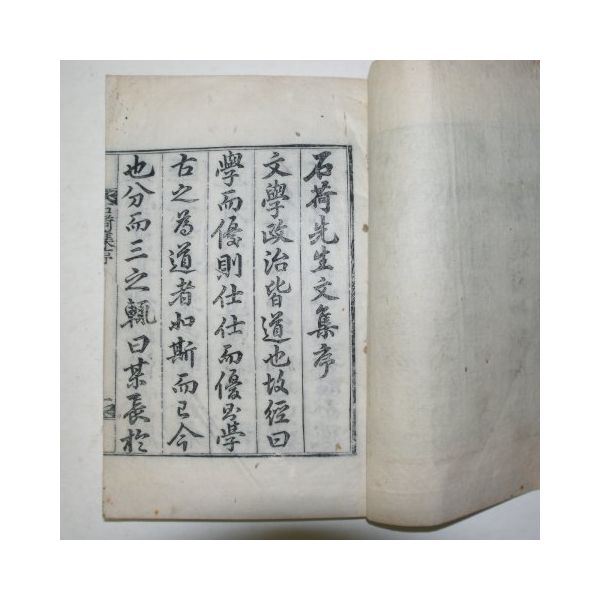 石荷先生文集序
文學政治皆道也故經曰
學而優則仕仕而優則學
古之為道者如斯而已今
也分而三之輒曰某長於
石荷集序